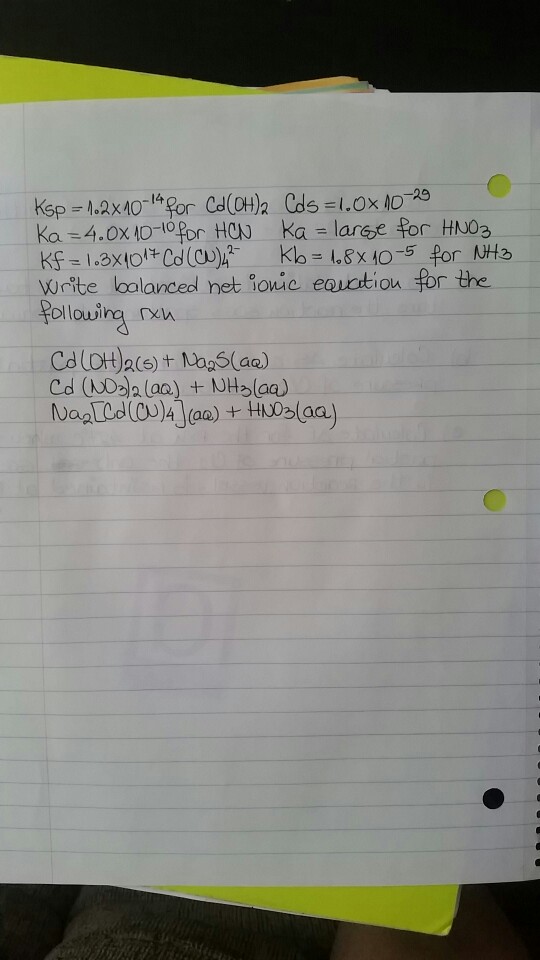 Ksp = 1.2x10-14 for Cd(OH)2 Cds = 1.0x 10-29
Ka = 4.0x 10-10 for HCN Ka = large for HNO3
Kf = 1.3x1017 Cd(CN)42- Kb = 1.8x10-5 for NH3
Write balanced net ionic equation for the
following rxn
Cd(OH)2(s) + Na2S(aq)
Cd(NO3)2(aq) + NH3(aq)
Na2[Cd(CN)4](aq) + HNO3(aq)